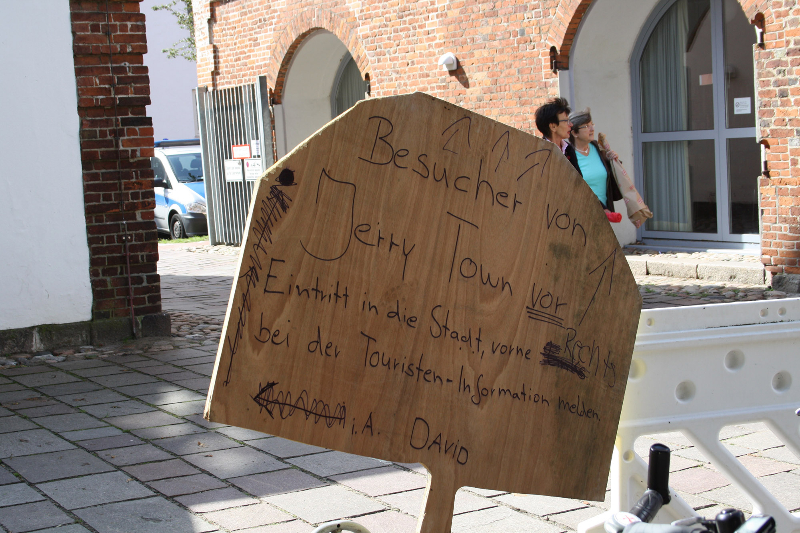 Besucher von
Jerry Town vor
Eintritt in die Stadt, vorne Rechts
bei der Touristen-Information melden.
i.A. DAVID